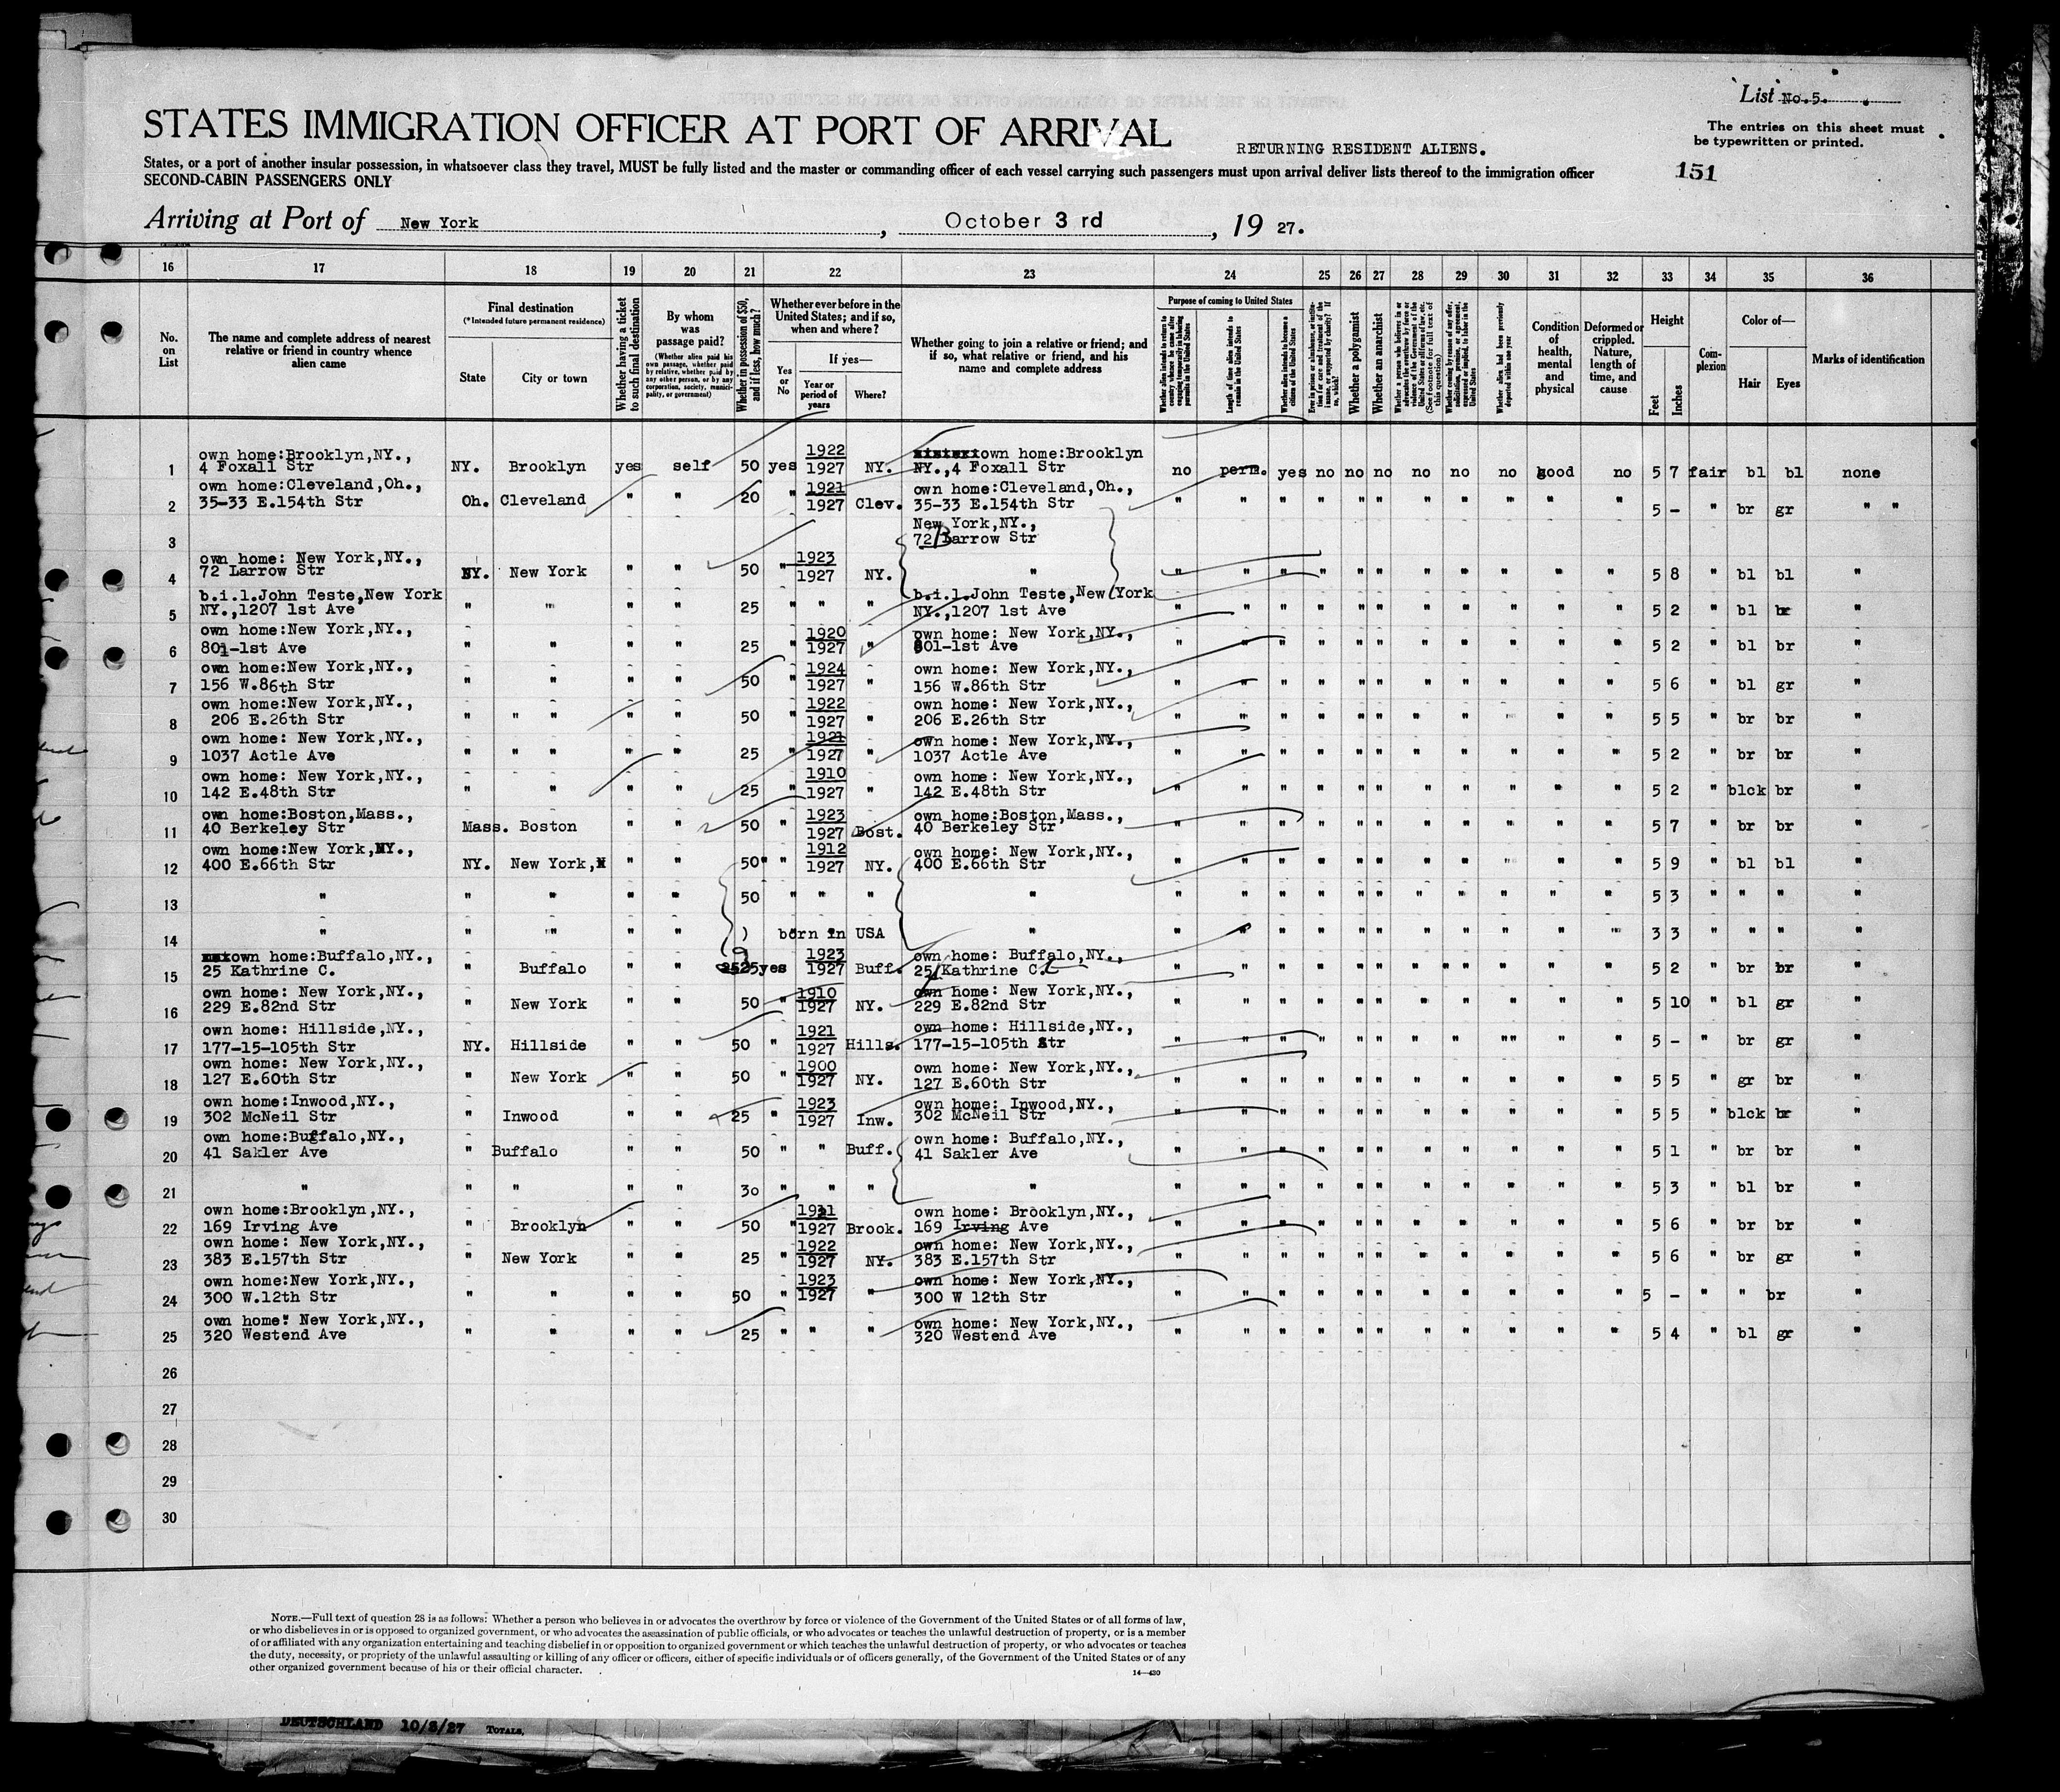 List No.5.
The entries on this sheet must
be typewritten or printed.
STATES IMMIGRATION OFFICER AT PORT OF ARRIVAL
RETURNING RESIDENT ALIENS.
151
States, or a port of another insular possession, in whatsoever class they travel, MUST be fully listed and the master or commanding officer of each vessel carrying such passengers must upon arrival deliver lists thereof to the immigration officer
SECOND-CABIN PASSENGERS ONLY
Arriving at Port of New York, October 3 rd, 19 27.
16 17 18 19 20 21 22 23 24 25 26 27 28 29 30 31 32 33 34 35 36
No. on List
The name and complete address of nearest relative or friend in country whence alien came
Final destination
(*Intended future permanent residence)
State
City or town
Whether having a ticket to such final destination
By whom was passage paid?
(Whether alien paid his own passage, whether paid by relative, whether paid by any other person, or by any corporation, society, municipality, or government)
Whether in possession of $50, and if less, how much?
Whether ever before in the United States; and if so, when and where?
Yes or No
If yes—
Year or period of years
Where?
Whether going to join a relative or friend; and if so, what relative or friend, and his name and complete address
Purpose of coming to United States
Whether alien intends to return to country whence he came after engaging temporarily in laboring pursuits in the United States
Length of time alien intends to remain in the United States
Whether alien intends to become a citizen of the United States
Ever in prison or almshouse, or institution for care and treatment of the insane, or supported by charity? If so, which?
Whether a polygamist
Whether an anarchist
Whether a person who believes in or advocates the overthrow by force or violence of the Government of the United States or all forms of law, etc. (See footnote for full text of this question)
Whether coming by reason of any offer, solicitation, promise, or agreement, expressed or implied, to labor in the United States
Whether alien had been previously deported within one year
Condition of health, mental and physical
Deformed or crippled. Nature, length of time, and cause
Height
Feet
Inches
Complexion
Color of—
Hair
Eyes
Marks of identification
1 own home:Brooklyn,NY., 4 Foxall Str NY. Brooklyn yes self 50 yes 1922 1927 NY. own home:Brooklyn NY.,4 Foxall Str no perm. yes no no no no no no good no 5 7 fair bl bl none
2 own home:Cleveland,Oh., 35-33 E.154th Str Oh. Cleveland " " 20 " 1921 1927 Clev. own home:Cleveland,Oh., 35-33 E.154th Str " " " " " " " " " " " 5 - " br gr " "
3 New York,NY., 72 Barrow Str
4 own home: New York,NY., 72 Larrow Str NY. New York " " 50 " 1923 1927 NY. " " " " " " " " " " " " 5 8 " bl bl "
5 b.i.l.John Teste,New York NY.,1207 1st Ave " " " " 25 " " " b.i.l.John Teste,New York NY.,1207 1st Ave " " " " " " " " " " " 5 2 " bl br "
6 own home:New York,NY., 801-1st Ave " " " " 25 " 1920 1927 " own home: New York,NY., 801-1st Ave " " " " " " " " " " " 5 2 " bl br "
7 own home:New York,NY., 156 W.86th Str " " " " 50 " 1924 1927 " own home: New York,NY., 156 W.86th Str " " " " " " " " " " " 5 6 " bl gr "
8 own home:New York,NY., 206 E.26th Str " " " " " 50 " 1922 1927 " own home: New York,NY., 206 E.26th Str " " " " " " " " " " " 5 5 " br br "
9 own home: New York,NY., 1037 Actle Ave " " " " " 25 " 1921 1927 " own home: New York,NY., 1037 Actle Ave " " " " " " " " " " " 5 2 " br br "
10 own home: New York,NY., 142 E.48th Str " " " " 25 " 1910 1927 " own home: New York,NY., 142 E.48th Str " " " " " " " " " " " 5 2 " blck br "
11 own home:Boston,Mass., 40 Berkeley Str Mass. Boston " " 50 " 1923 1927 Bost. own home:Boston,Mass., 40 Berkeley Str " " " " " " " " " " " 5 7 " br br "
12 own home:New York,NY., 400 E.66th Str NY. New York, " " 50 " " 1912 1927 NY. own home: New York,NY., 400 E.66th Str " " " " " " " " " " " 5 9 " bl bl "
13 " " " " " 50 " " " " " " " " " " " " " " " 5 3 " " " "
14 " " " " " born in USA " " " " " " " " " " " " 3 3 " " " "
15 own home:Buffalo,NY., 25 Kathrine C. " Buffalo " " 25 yes 1923 1927 Buff. own home: Buffalo,NY., 25 Kathrine C. " " " " " " " " " " " " 5 2 " br br "
16 own home: New York,NY., 229 E.82nd Str " New York " " 50 " 1910 1927 NY. own home: New York,NY., 229 E.82nd Str " " " " " " " " " " " 5 10 " bl gr "
17 own home: Hillside,NY., 177-15-105th Str NY. Hillside " " 50 " 1921 1927 Hills. own home: Hillside,NY., 177-15-105th Str " " " " " " " " "" " " 5 - " br gr "
18 own home: New York,NY., 127 E.60th Str " New York " " 50 " 1900 1927 NY. own home: New York,NY., 127 E.60th Str " " " " " " " " " " " 5 5 " gr br "
19 own home:Inwood,NY., 302 McNeil Str " Inwood " " 25 " 1923 1927 Inw. own home: Inwood,NY., 302 McNeil Str " " " " " " " " " " " 5 5 " blck br "
20 own home:Buffalo,NY., 41 Sakler Ave " Buffalo " " 50 " " Buff. own home: Buffalo,NY., 41 Sakler Ave " " " " " " " " " " " 5 1 " br br "
21 " " " " " 30 " " " " " " " " " " " " " " " 5 3 " bl br "
22 own home:Brooklyn,NY., 169 Irving Ave " Brooklyn " " 50 " 1927 Brook. own home: Brooklyn,NY., 169 Irving Ave " " " " " " " " " " " 5 6 " br br "
23 own home: New York,NY., 383 E.157th Str " New York " " 25 " 1922 1927 NY. own home: New York,NY., 383 E.157th Str " " " " " " " " " " " 5 6 " br gr "
24 own home:New York,NY., 300 W.12th Str " " " " 50 " 1923 1927 " own home: New York,NY., 300 W 12th Str " " " " " " " " " " " 5 - " " br "
25 own home" New York,NY., 320 Westend Ave " " " " 25 " " " own home: New York,NY., 320 Westend Ave " " " " " " " " " " " 5 4 " bl gr "
26
27
28
29
30
NOTE.—Full text of question 28 is as follows: Whether a person who believes in or advocates the overthrow by force or violence of the Government of the United States or of all forms of law,
or who disbelieves in or is opposed to organized government, or who advocates the assassination of public officials, or who advocates or teaches the unlawful destruction of property, or is a member
of or affiliated with any organization entertaining and teaching disbelief in or opposition to organized government or which teaches the unlawful destruction of property, or who advocates or teaches
the duty, necessity, or propriety of the unlawful assaulting or killing of any officer or officers, either of specific individuals or of officers generally, of the Government of the United States or of any
other organized government because of his or their official character.
14—430
DEUTSCHLAND 10/3/27 TOTALS.